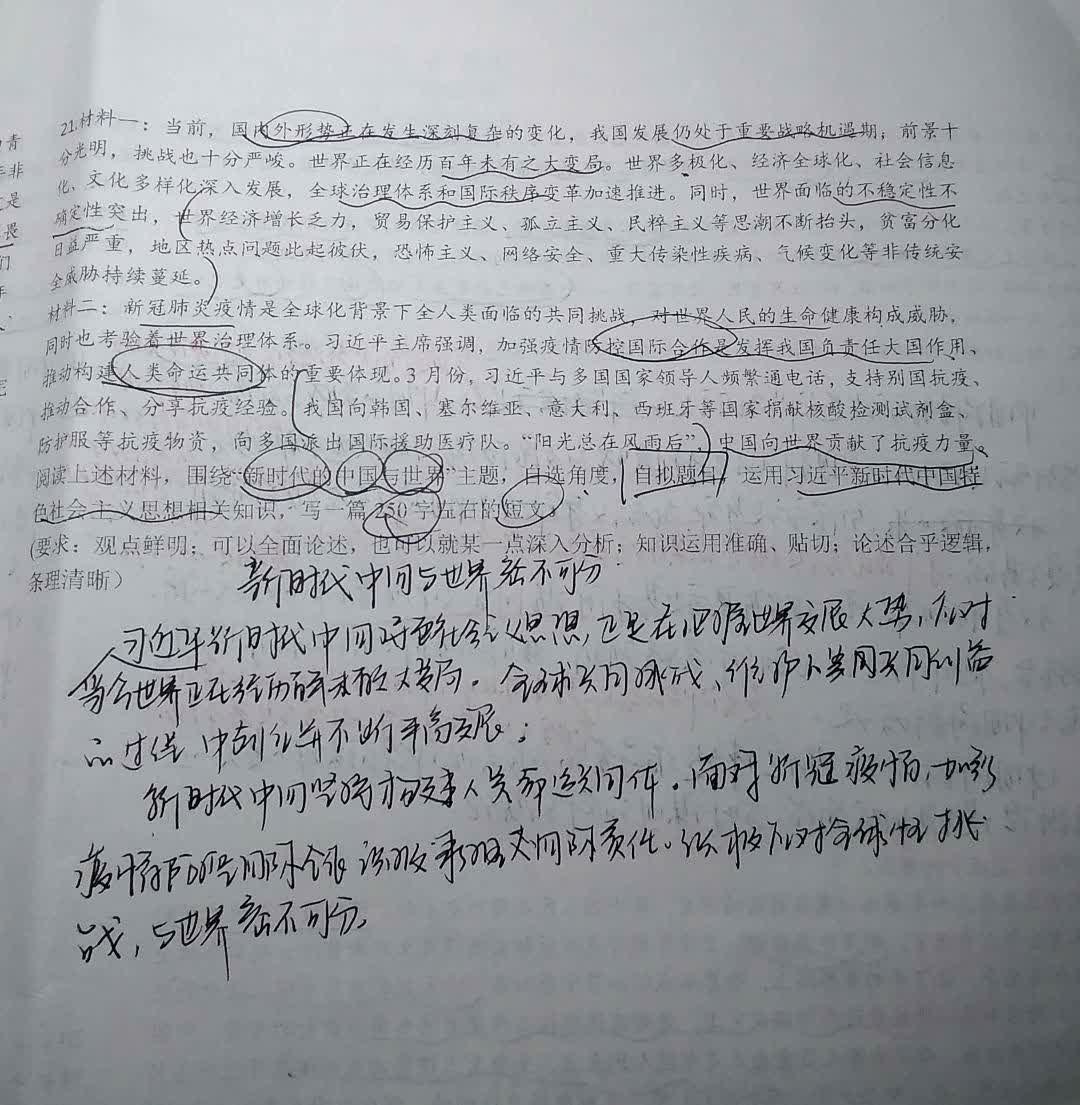 21.材料一：当前，国内外形势正在发生深刻复杂的变化，我国发展仍处于重要战略机遇期；前景十
分光明，挑战也十分严峻。世界正在经历百年未有之大变局。世界多极化、经济全球化、社会信息
化、文化多样化深入发展，全球治理体系和国际秩序变革加速推进。同时，世界面临的不稳定性不
确定性突出，世界经济增长乏力，贸易保护主义、孤立主义、民粹主义等思潮不断抬头，贫富分化
日益严重，地区热点问题此起彼伏，恐怖主义、网络安全、重大传染性疾病、气候变化等非传统安
全威胁持续蔓延。
材料二：新冠肺炎疫情是全球化背景下全人类面临的共同挑战，对世界人民的生命健康构成威胁，
同时也考验着世界治理体系。习近平主席强调，加强疫情防控国际合作是发挥我国负责任大国作用、
推动构建人类命运共同体的重要体现。3月份，习近平与多国国家领导人频繁通电话，支持别国抗疫、
推动合作、分享抗疫经验。我国向韩国、塞尔维亚、意大利、西班牙等国家捐献核酸检测试剂盒、
防护服等抗疫物资，向多国派出国际援助医疗队。“阳光总在风雨后”，中国向世界贡献了抗疫力量。
阅读上述材料，围绕“新时代的中国与世界”主题，自选角度，自拟题目，运用习近平新时代中国特
色社会主义思想相关知识，写一篇250字左右的短文。
(要求：观点鲜明；可以全面论述，也可以就某一点深入分析；知识运用准确、贴切；论述合乎逻辑，
条理清晰）
新时代中国与世界密不可分
习近平新时代中国特色社会主义思想，正是在把握世界发展大势，应对
当今世界正在经历百年未有之大变局。全球共同挑战、维护人类共同利益
的过程中创立并不断丰富发展；
新时代中国坚持构建人类命运共同体。面对新冠疫情，加强
疫情防控国际合作 共同的责任。积极应对全球性挑
战，与世界密不可分。